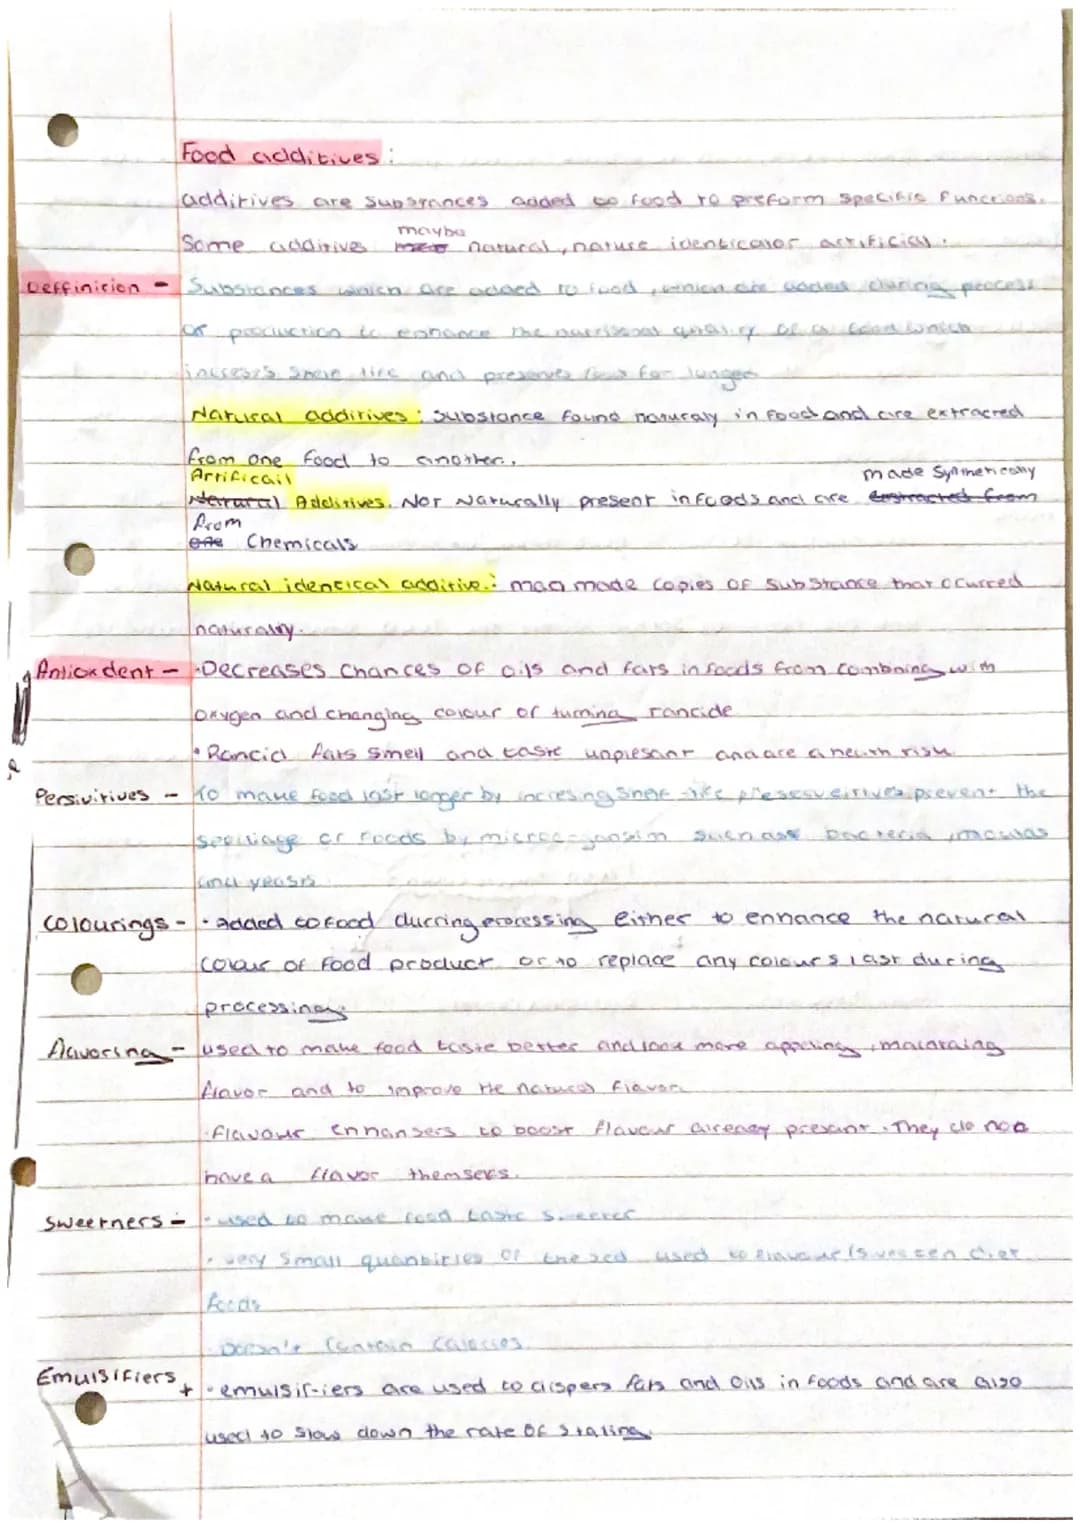 Food additives:
additives are substances added to food to preform specific functions.
maybe
Some additives natural, nature identical or artificial.
Deffinition - Substances which are added to food, which are added during process
of production to enhance the nutrisonal quality of a food which
increses shelf life and preserves for longer
Natural additives: substance found naturaly in food and are extracted
from one food to another.
Artificail made Synthetically
Natural Additives. Not Naturally present in foods and are extracted from
from
one Chemicals
Natural identical additive: man made copies of substance that ocurred
naturally.
Antioxdent - ·Decreases chances of oils and fats in foods from combining with
oxygen and changing colour or turning rancide
• Rancid fats smell and taste unplesant and are a health risk
Persivitives - To make food last longer by incresing shelf life prevent the
of foods by such ass bacteria, moulds
and yeasts
Colourings - · added to food durring processing either to enhance the natural
colour of food product or to replace any colours last during
processing.
flavoring - used to make food taste better and look more appealing,
flavor and to improve the natural flavor
·flavour enhansers to boost flavour already presant. They do not
have a flavor themsels.
Sweetners - · used to make food taste sweeter
· very small quantities of used to flavour diet
foods
Doesn't contain calories
Emulsifiers
+ · emulsifiers are used to dispers fats and oils in foods and are also
used to slow down the rate of staling.